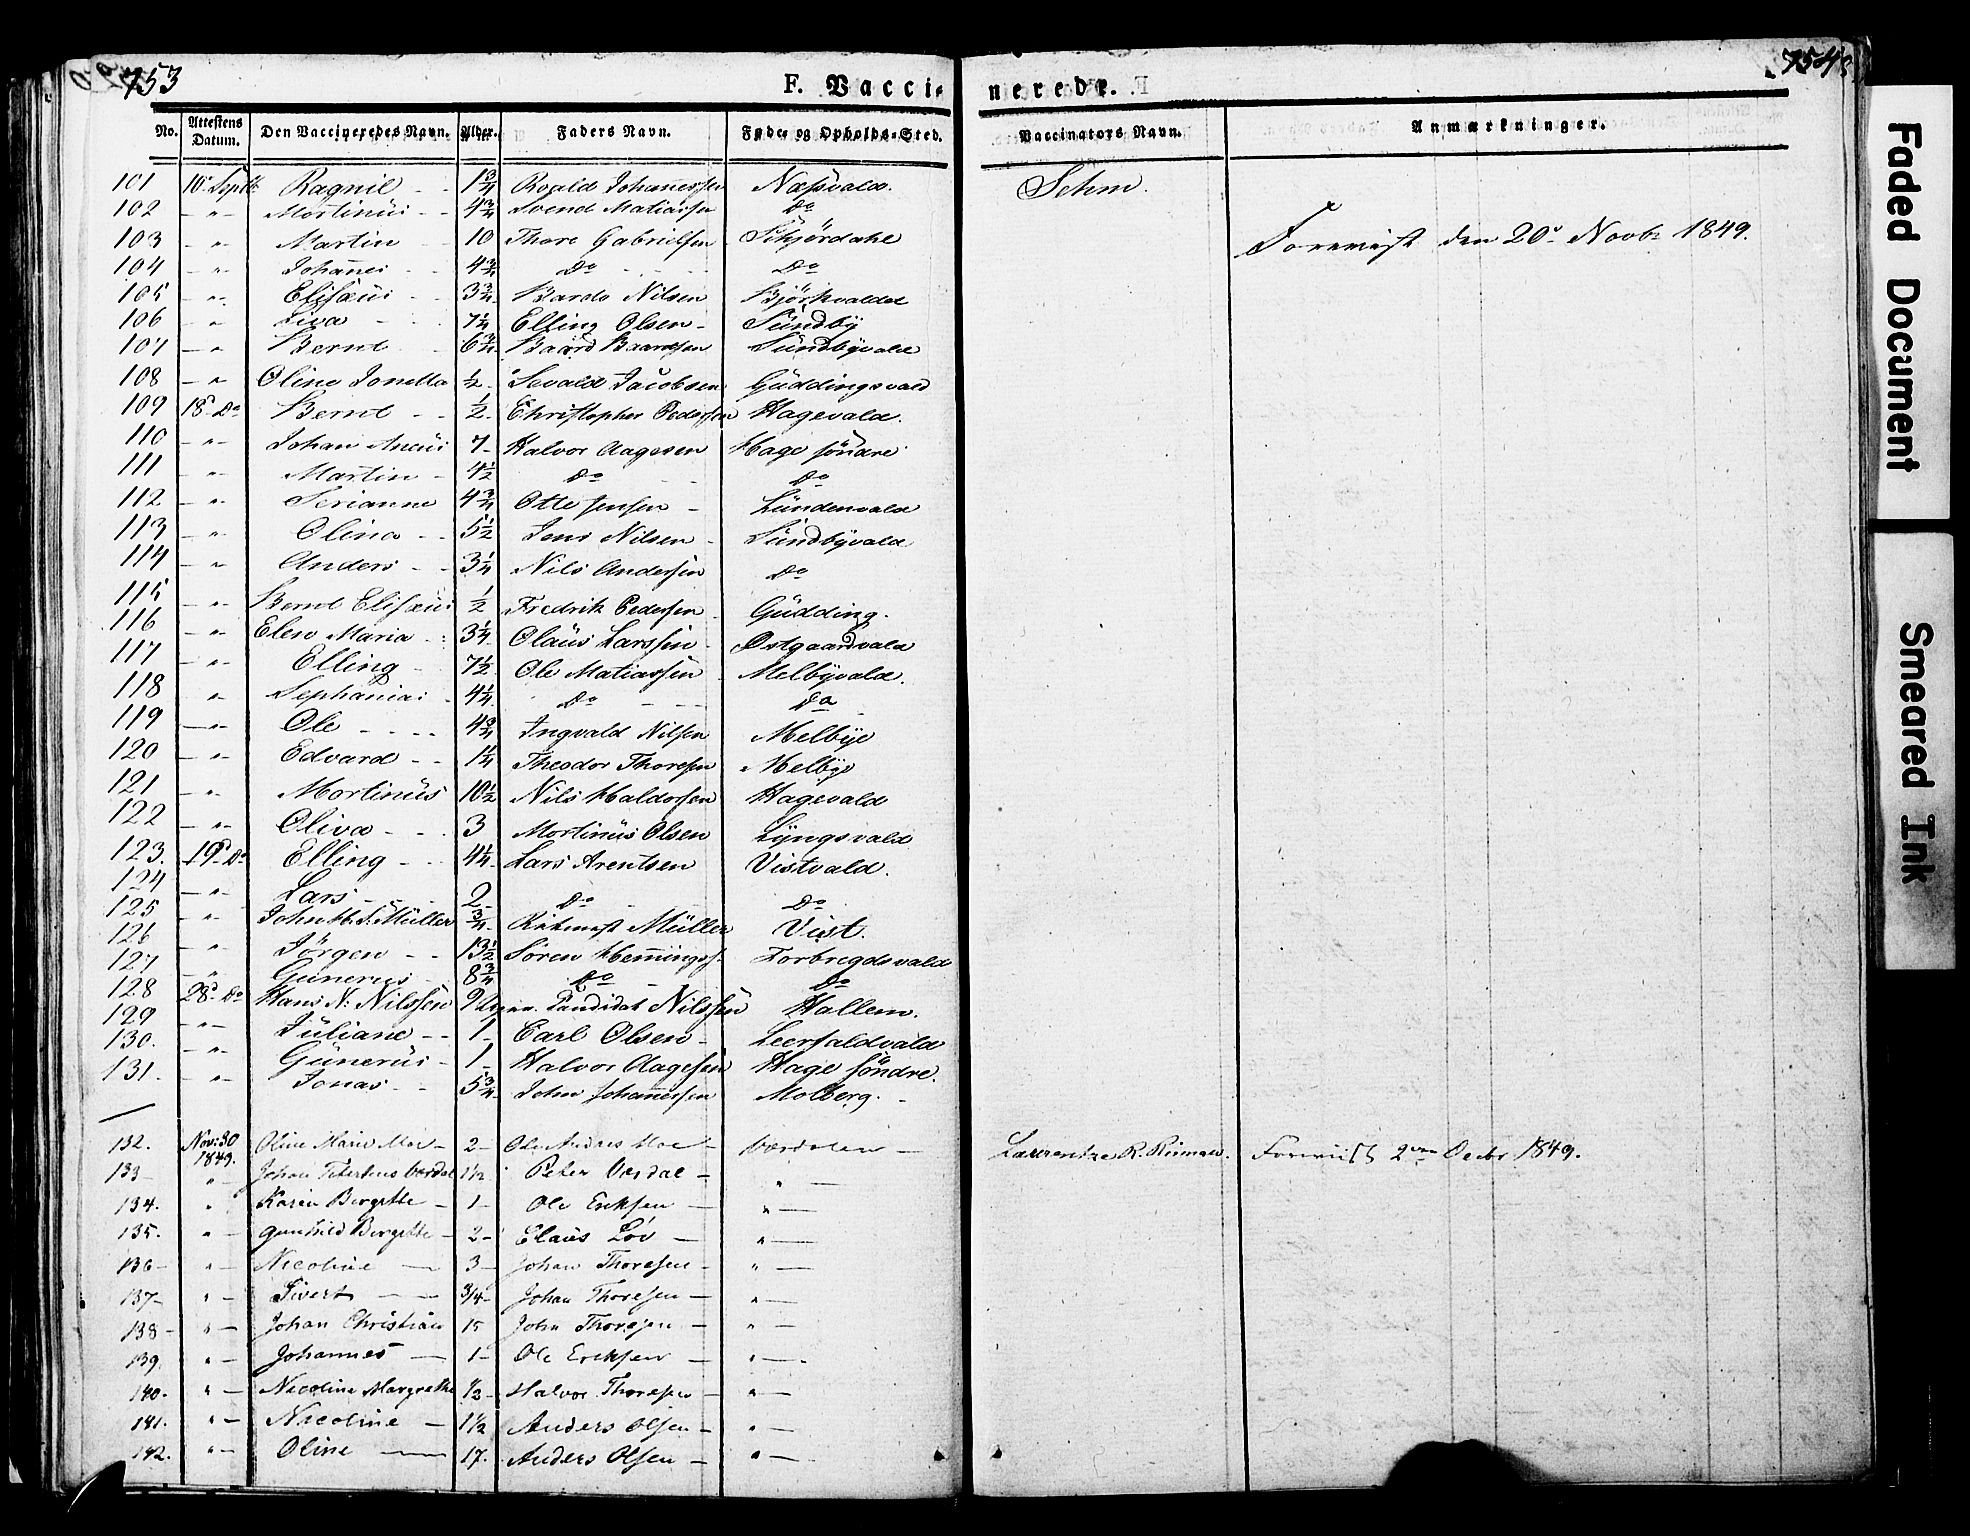 753
F. Vacci-
nerede.
754
No. Attestens Datum. Den Vaccineredes Navn. Alder. Faders Navn. Føde og Opholds-Sted. Vaccinators Navn. Anmærkninger.
101 16 Septb Ragnil - - 1 3/4 Roald Johannessen Næssvald. Sehm.
102 - " - Mortinus - - 4 3/4 Svend Matiassen Do
103 - " - Martin 10 Thore Gabrielsen Skjørdahl Forevist den 20de Novbr 1849.
104 - " - Johannes - - 4 3/4 Do - - - Do
105 - " - Elisæus - - 3 3/4 Bardo Nilsen Bjørkvaldet
106 - " - Liva - - 7 1/4 Elling Olsen - Sundby
107 - " - Bernt - - 6 3/4 Baard Baardsen Sundbyvald
108 - " - Oline Jonetta 1/2 - Sevald Jacobsen Guddingsvald
109 18 Do Bernt - - 1/2 - Christopher Pedersen Hagevald.
110 - " - Johan 7 - Halvor Aagesen Hage søndre
111 - " - Martin - 4 1/2 Do - - Do
112 - " - Serianne 4 3/4 Otte Jensen - Lundenvald
113 - " - Olina - - 5 1/2 Jens Nilsen - Sundbyvald
114 - " - Anders - - 3 1/4 Nils Andersen Do
115 - " - Bernt Elisæus 1/2 Fredrik Pedersen - Gudding.
116 - " - Elen Maria - 3 1/4 Olaus Larssen - Østgaardvald
117 - " - Elling - 7 1/2 Ole Matiassen - Melbyvald.
118 - " - Sephanias - 4 1/4 Do - - - Do
119 - " - Ole - - - - 4 3/4 Ingvald Nilsen Melbye
120 - " - Edvard - - 1 1/4 Theodor Thoresen Melbye
121 - " - Mortinus 10 1/2 Nils Haldorsen Hagevald
122 - " - Oliva - - - 3 Mortinus Olsen Lyngsvald
123. 19 Do Elling - - 4 1/4 - Lars Arentsen Vistvald.
124 - " - Lars - - - 2 - Do - - Do
125 - " - John H. S. Müller 3/4 - Müller Vist.
126 - " - Jørgen - - 13 1/2 Søren Hemmings. Forbregdsvald
127 - " - Gunerus - - 8 3/4 Do - Do
128 28 Do Hans N: Nilssen 9 Candidat Nilssen Hallem.
129 - " - Juliane - - 1 - Carl Olsen - Leerfaldvald
130. - " - Gunerus - 1 - Halvor Aagesen Hage søndre.
131. - " - Jonas - - 5 3/4 - John Johannessen Molberg. -
132. Nov: 30 1849. Oline Marie Moe - 2 - Ole Andres Moe - Værdalen - Laurentze R. Forevist 2den Decbr 1849.
133 - " Johan Petersens Værdal 1 1/2 Peter Værdal - " -
134. " Karen Bergitte - 1 - Ole Eriksen - " -
135. " - Gunhild Bergitte - 2 - Claus Løv - " -
136 - " - Nicoline - 3 - Johan Thoresen - " -
137 - " - Sivert - - 3/4 - Johan Thoresen - " -
138 - " - Johan Christian 15 John Thoresen - " -
139. " - Johannes - 1 - Ole Eriksen - " -
140. " - Nicoline Margrethe 1/2 - Halvor Thoresen - " -
141. " - Nicoline - 1 1/2 Anders Olsen - " -
142. " - Oline - 17. Anders Olsen - " -
Faded Document
Smeared Ink